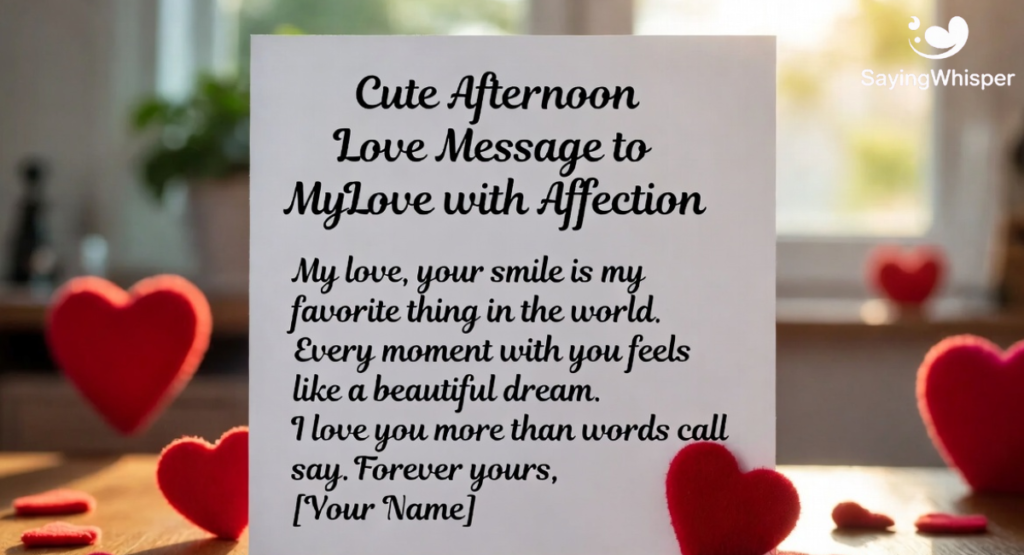 SayingWhisper
Cute Afternoon
Love Message to
MyLove with Affection
My love, your smile is my
favorite thing in the world.
Every moment with you feels
like a beautiful dream.
I love you more than words call
say. Forever yours,
[Your Name]